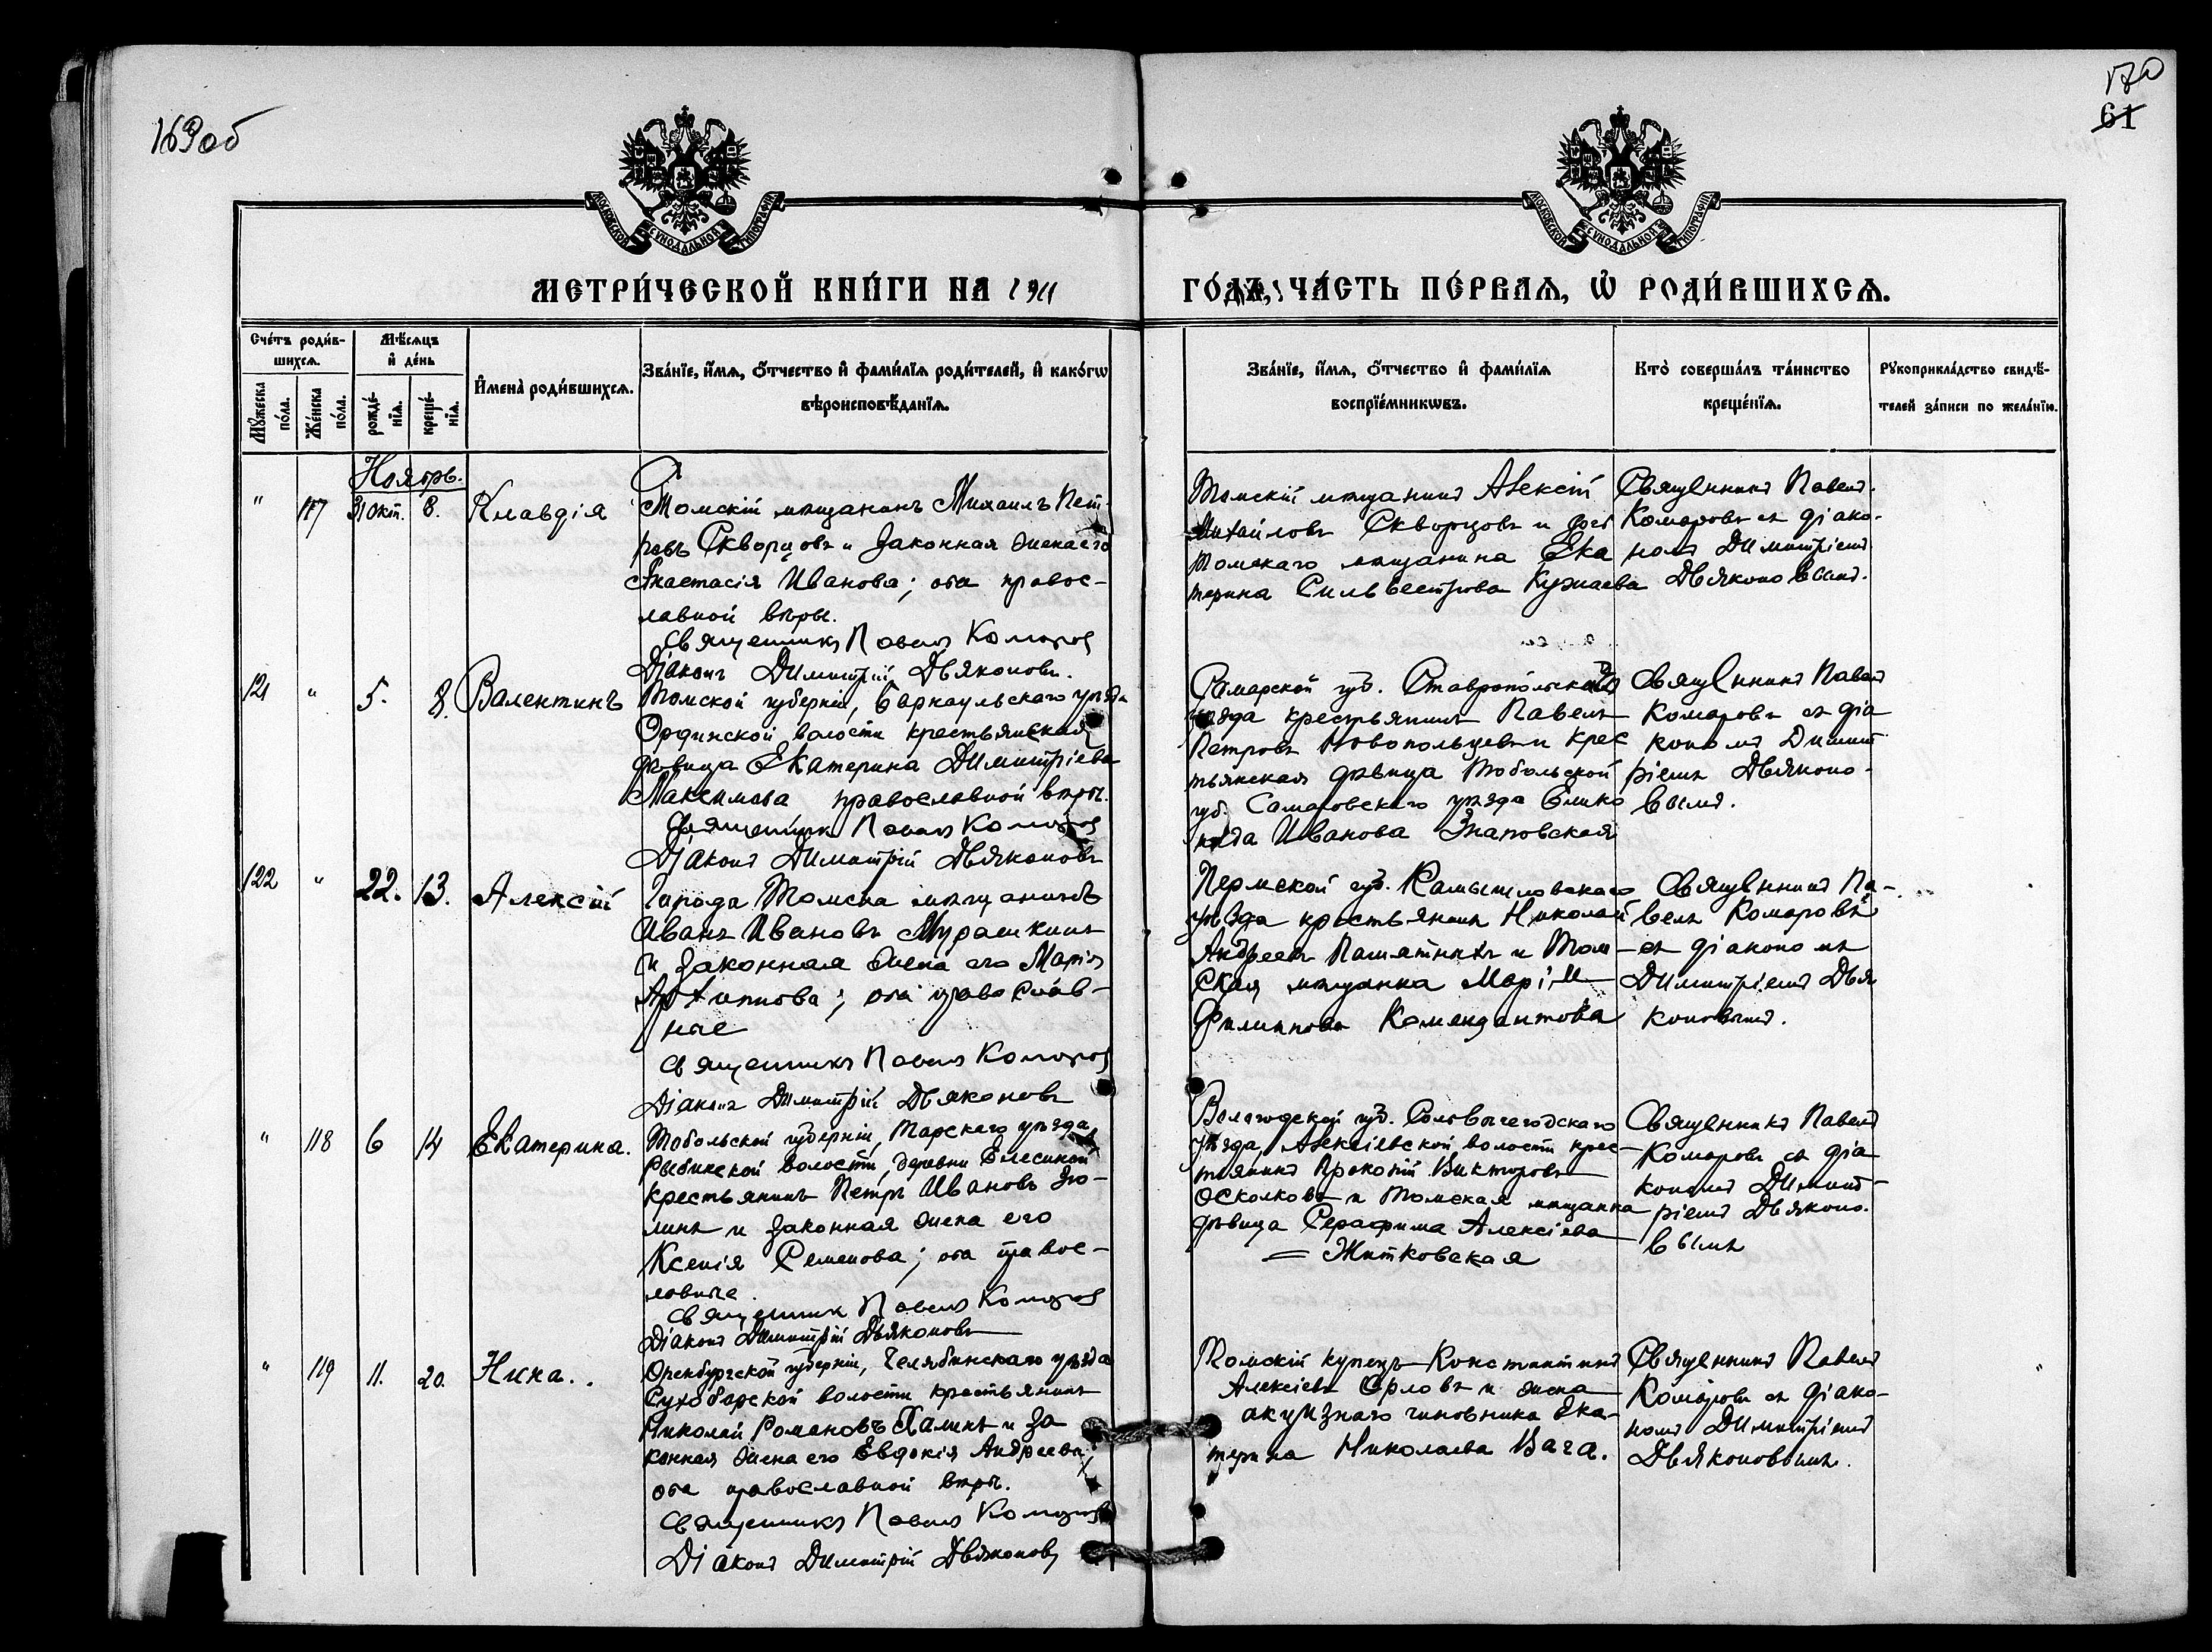 169 об
170
61
МОСКОВСКОЙ СѴНОДАЛЬНОЙ ТИПОГРАФІИ
МОСКОВСКОЙ СѴНОДАЛЬНОЙ ТИПОГРАФІИ
МЕТРИ́ЧЕСКОЙ КНИ́ГИ НА 1911
ГО́ДЪ, ЧА́СТЬ ПЕ́РВАѦ, Ѡ҆ РОДИ́ВШИХСѦ.
Сче́тъ роди́в-
шихсѧ.
Мꙋ́жеска по́ла.
Же́нска по́ла.
Мѣ́сѧцъ
и҆ де́нь
рожде́-
нїѧ.
креще́-
нїѧ.
И҆мена̀ роди́вшихсѧ.
Зва́нїе, и҆́мѧ, ѻ҆́тчество и҆ фами́лїѧ роди́телей, и҆ како́гѡ
вѣроисповѣ́данїѧ.
Зва́нїе, и҆́мѧ, ѻ҆́тчество и҆ фами́лїѧ
воспрїе́мникѡвъ.
Кто̀ соверша́лъ та́инство
креще́нїѧ.
Рꙋкоприкла́дство свидѣ́-
телей за́писи по жела́нїю.
Ноябрь.
" 117 31 окт. 8. Клавдія
Томскій мѣщанинъ Михаилъ Пет-
ровъ Скворцовъ и законная жена его
Анастасія Иванова; оба правос-
лавной вѣры.
Священникъ Павелъ Комаров
Діаконъ Димитрій Дьяконовъ.
Томскій мѣщанинъ Алексій
Михайловъ Скворцовъ и
томскаго мѣщанина Ека
терина Сильвестрова
Священникъ Павелъ
Комаровъ съ діако-
номъ Димитріемъ
Дьяконовымъ.
121 " 5. 8. Валентинъ
Томской губерніи, Барнаульскаго уѣзда
Ординской волости крестьянская
дѣвица Екатерина Димитріева
Максимова православной вѣры.
Священникъ Павелъ Комаров
Діаконъ Димитрій Дьяконовъ
Самарской губ. Ставропольскаго
уѣзда крестьянинъ Павелъ
Петровъ Новопольцевъ и крес
тьянская дѣвица Тобольской
губ. уѣзда
Иванова
Священникъ Павелъ
Комаровъ съ діа
кономъ Димит
ріемъ Дьяконо-
вымъ.
122 " 22. 13. Алексій
Города Томска мѣщанинъ
Иванъ Ивановъ Мурашкинъ
и законная жена его Марія
Архиппова; оба православ-
ные
Священникъ Павелъ Комаров
Діаконъ Димитрій Дьяконовъ
Пермской губ. Камышловскаго
уѣзда крестьянинъ Николай
Андреевъ и Том-
ская мѣщанка Марія
Филиппова Комендантова
Священникъ Па-
велъ Комаровъ
съ діакономъ
Димитріемъ Дья
коновымъ.
" 118 6 14 Екатерина.
Тобольской губерніи, Тарскаго уѣзда
Рыбинской волости, деревни
крестьянинъ Петръ Ивановъ Зю-
линъ и законная жена его
Ксенія Семенова; оба правос-
лавные.
Священник Павелъ Комаров
Діаконъ Димитрій Дьяконовъ
Вологодской губ. Сольвычегодскаго
уѣзда, Алексіевской волости крес-
тьянинъ Прокопій Викторовъ
Осколковъ и Томская мѣщанка
дѣвица Серафима Алексіева
= Житковская
Священникъ Павелъ
Комаровъ съ діа
кономъ Димит-
ріемъ Дьяконо-
вымъ
" 119 11. 20. Нина..
Оренбургской губерніи, Челябинскаго уѣзда
Сухоборской волости крестьянинъ
Николай Романовъ Халинъ и за
конная жена его Евдокія Андреева;
оба православной вѣры.
Священникъ Павелъ Комаровъ
Діаконъ Димитрій Дьяконовъ
Томскій купецъ Константинъ
Алексіевъ Орловъ и жена
акцизнаго чиновника Ека-
терина Николаева Вага.
Священникъ Павелъ
Комаровъ съ діако-
номъ Димитріемъ
Дьяконовымъ.